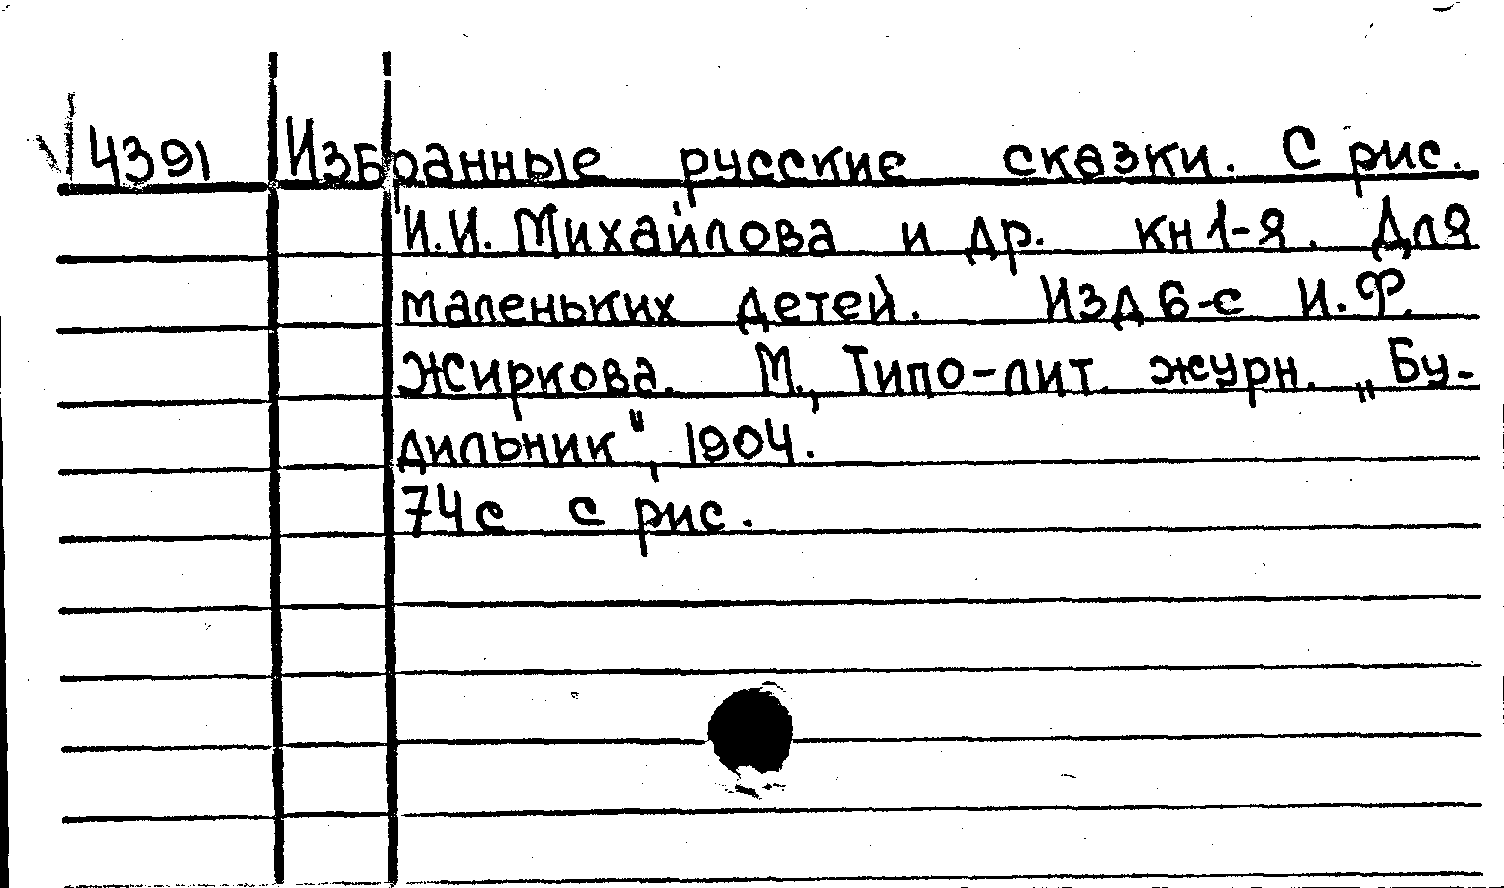 √ 4391 Избранные русские сказки. С рис.
И.И. Михайлова и др. кн 1-я. Для
маленьких детей. Изд 6-е И.Ф.
Жиркова. М., Типо-лит. журн. „Бу-
дильник", 1904.
74с с рис.